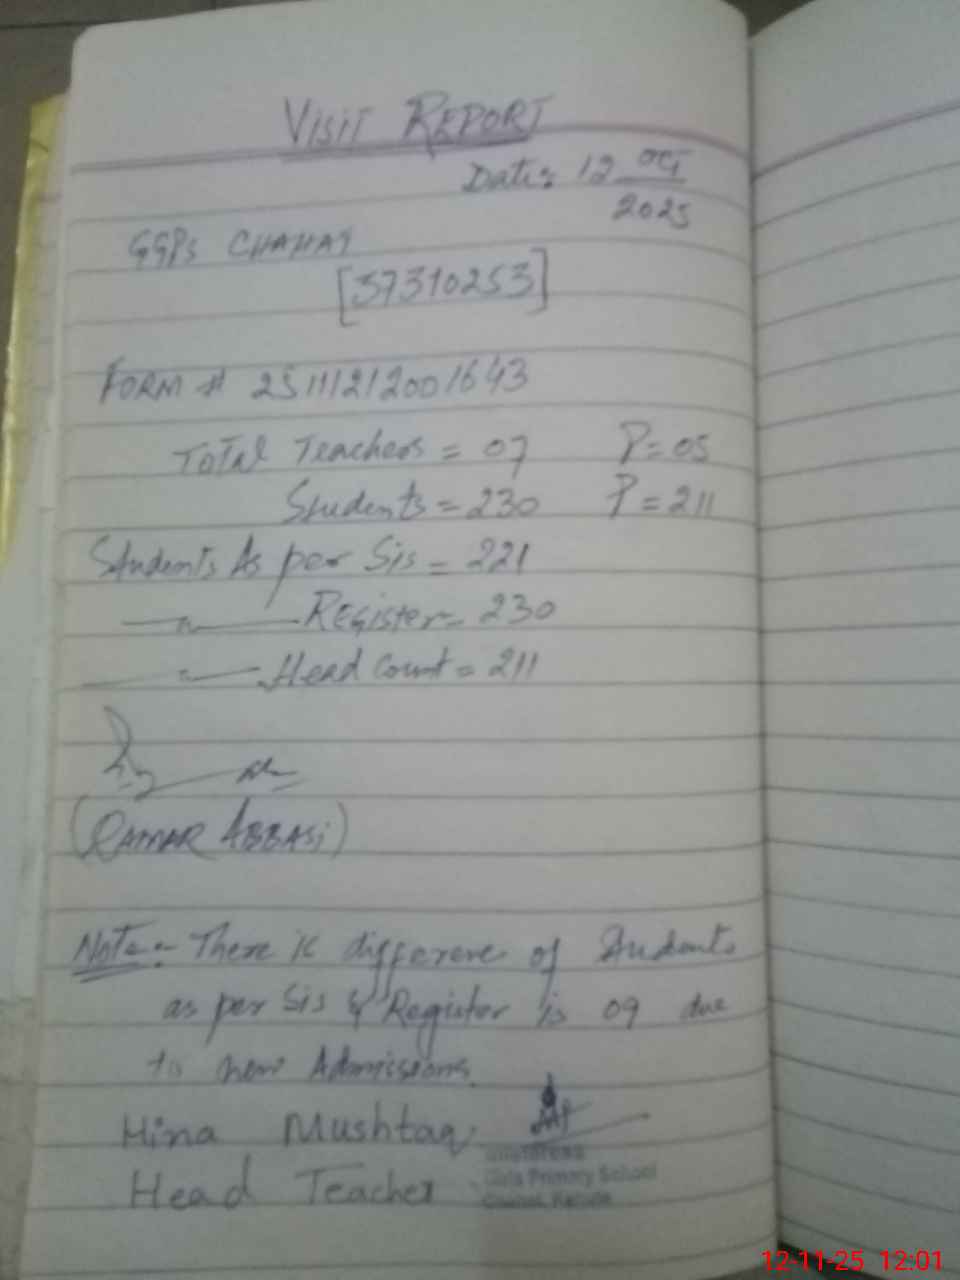 VISIT REPORT
Date: 12 OCT
2025
GGPS CHAHAT
[37310253]
FORM # 251112120001643
Total Teachers = 07 P = 05
Students = 230 P = 211
Students As per Sis = 221
—〃— Register = 230
—〃— Head Count = 211
(QAMAR ABBASI)
Note:- There is differene of Students
as per Sis & Register is 09 due
to new Admissions.
Hina Mushtaq
Head Teacher
Girls Primary School
12-11-25 12:01